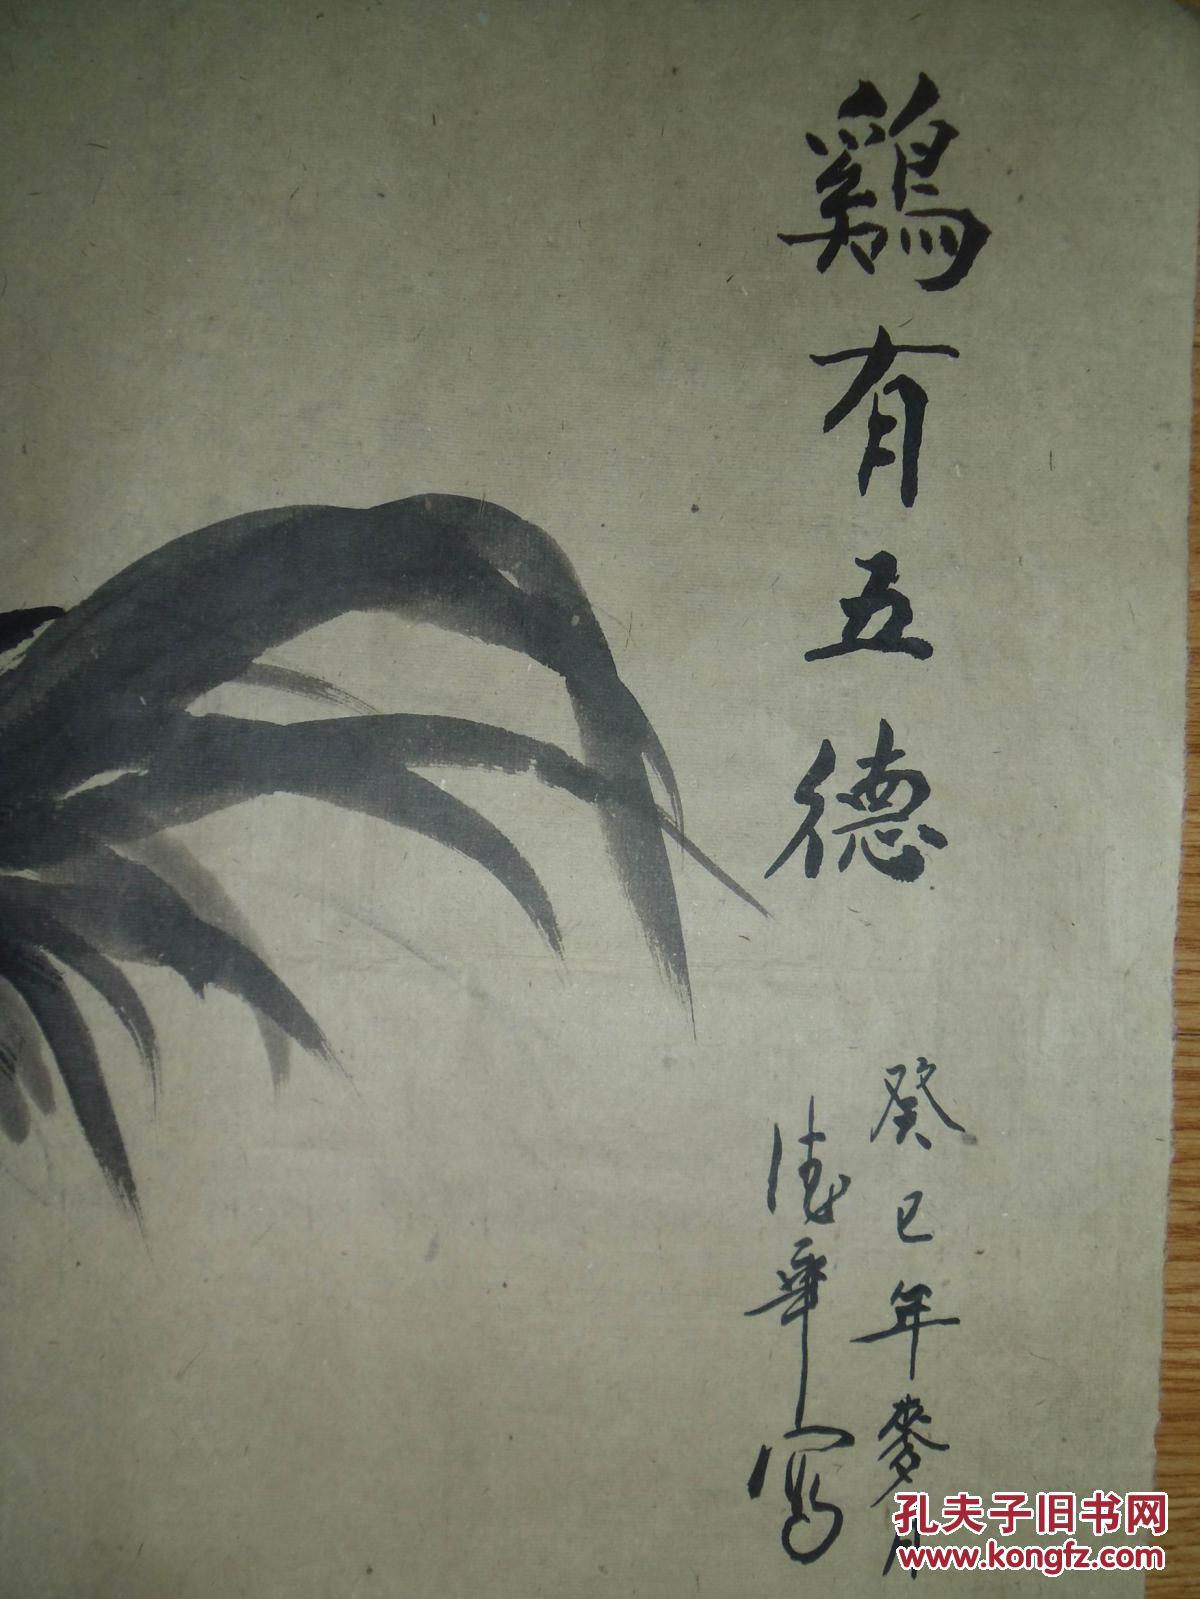 鷄有五德
癸巳年麥月
德華寫
孔夫子旧书网
www.kongfz.com